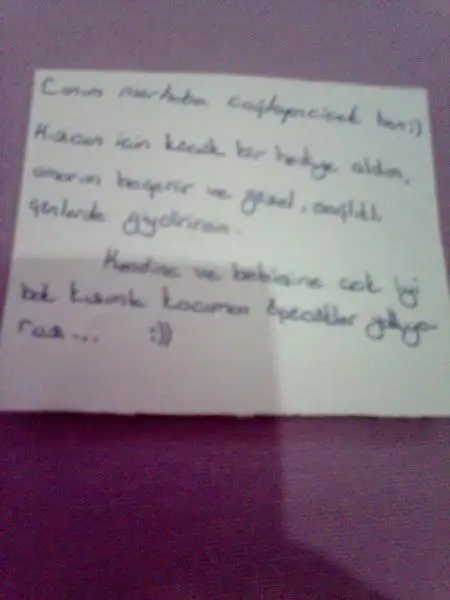 Canım merhaba çağlayançiçek ben:)
Kızın için küçük bir hediye aldım,
umarım beğenir ve güzel, sağlıklı
günlerde giydirirsin.
Kendine ve bebişine çok iyi
bak kızımla kocaman öpücükler yolluyo-
ruz... :))